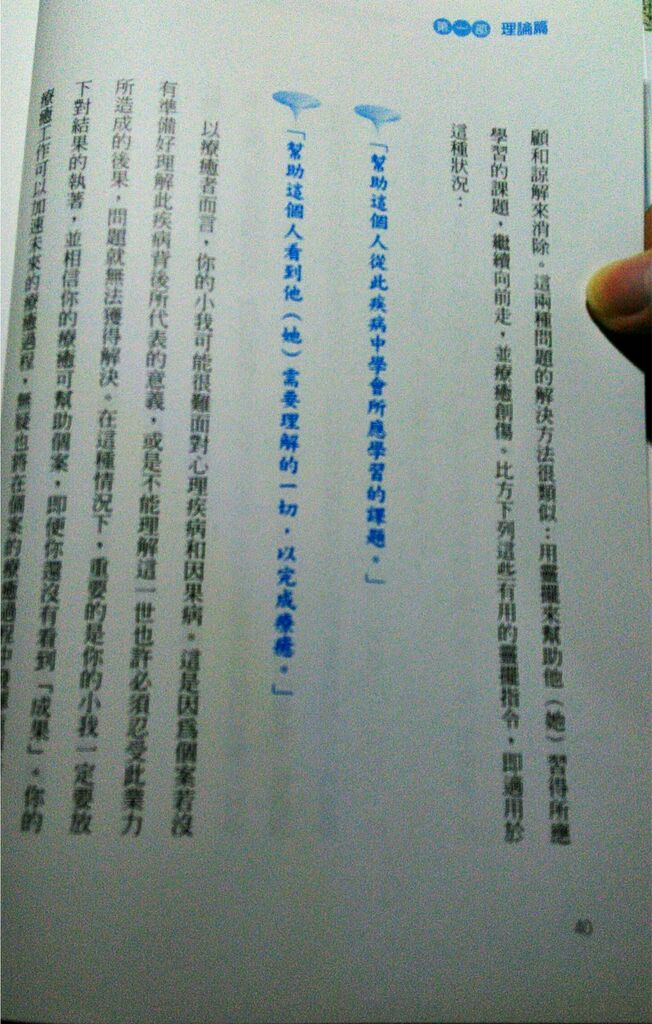 第一部 理論篇
顧和諒解來消除。這兩種問題的解決方法很類似：用靈擺來幫助他（她）習得所應
學習的課題，繼續向前走，並療癒創傷。比方下列這些有用的靈擺指令，即適用於
這種狀況：
「幫助這個人從此疾病中學會所應學習的課題。」
「幫助這個人看到他（她）需要理解的一切，以完成療癒。」
以療癒者而言，你的小我可能很難面對心理疾病和因果病。這是因為個案若沒
有準備好理解此疾病背後所代表的意義，或是不能理解這一世也許必須忍受此業力
所造成的後果，問題就無法獲得解決。在這種情況下，重要的是你的小我一定要放
下對結果的執著，並相信你的療癒可幫助個案，即便你還沒有看到「成果」。你的
療癒工作可以加速未來的療癒過程，無疑也將在個案的療癒過程中
40